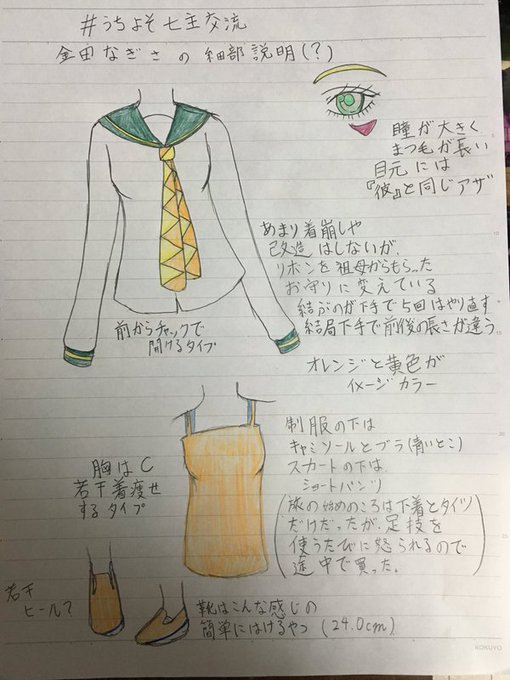 #うちよそ七主交流
金田なぎさの細部説明(?)
瞳が大きく
まつ毛が長い
目元には
『彼』と同じアザ
あまり着崩しや
改造はしないが、
リボンを祖母からもらった
お守りに変えている
結ぶのが下手で5回はやり直す
結局下手で前後の長さが違う
前からチャックで
開けるタイプ
オレンジと黄色が
イメージカラー
制服の下は
キャミソールとブラ(青いとこ)
スカートの下は
ショートパンツ
(旅の始めのころは下着とタイツ
だけだったが、足技を
使うたびに怒られるので
途中で買った。)
胸はC
若干着痩せ
するタイプ
若干
ヒール?
靴はこんな感じの
簡単にはけるやつ (24.0cm)
KOKUYO